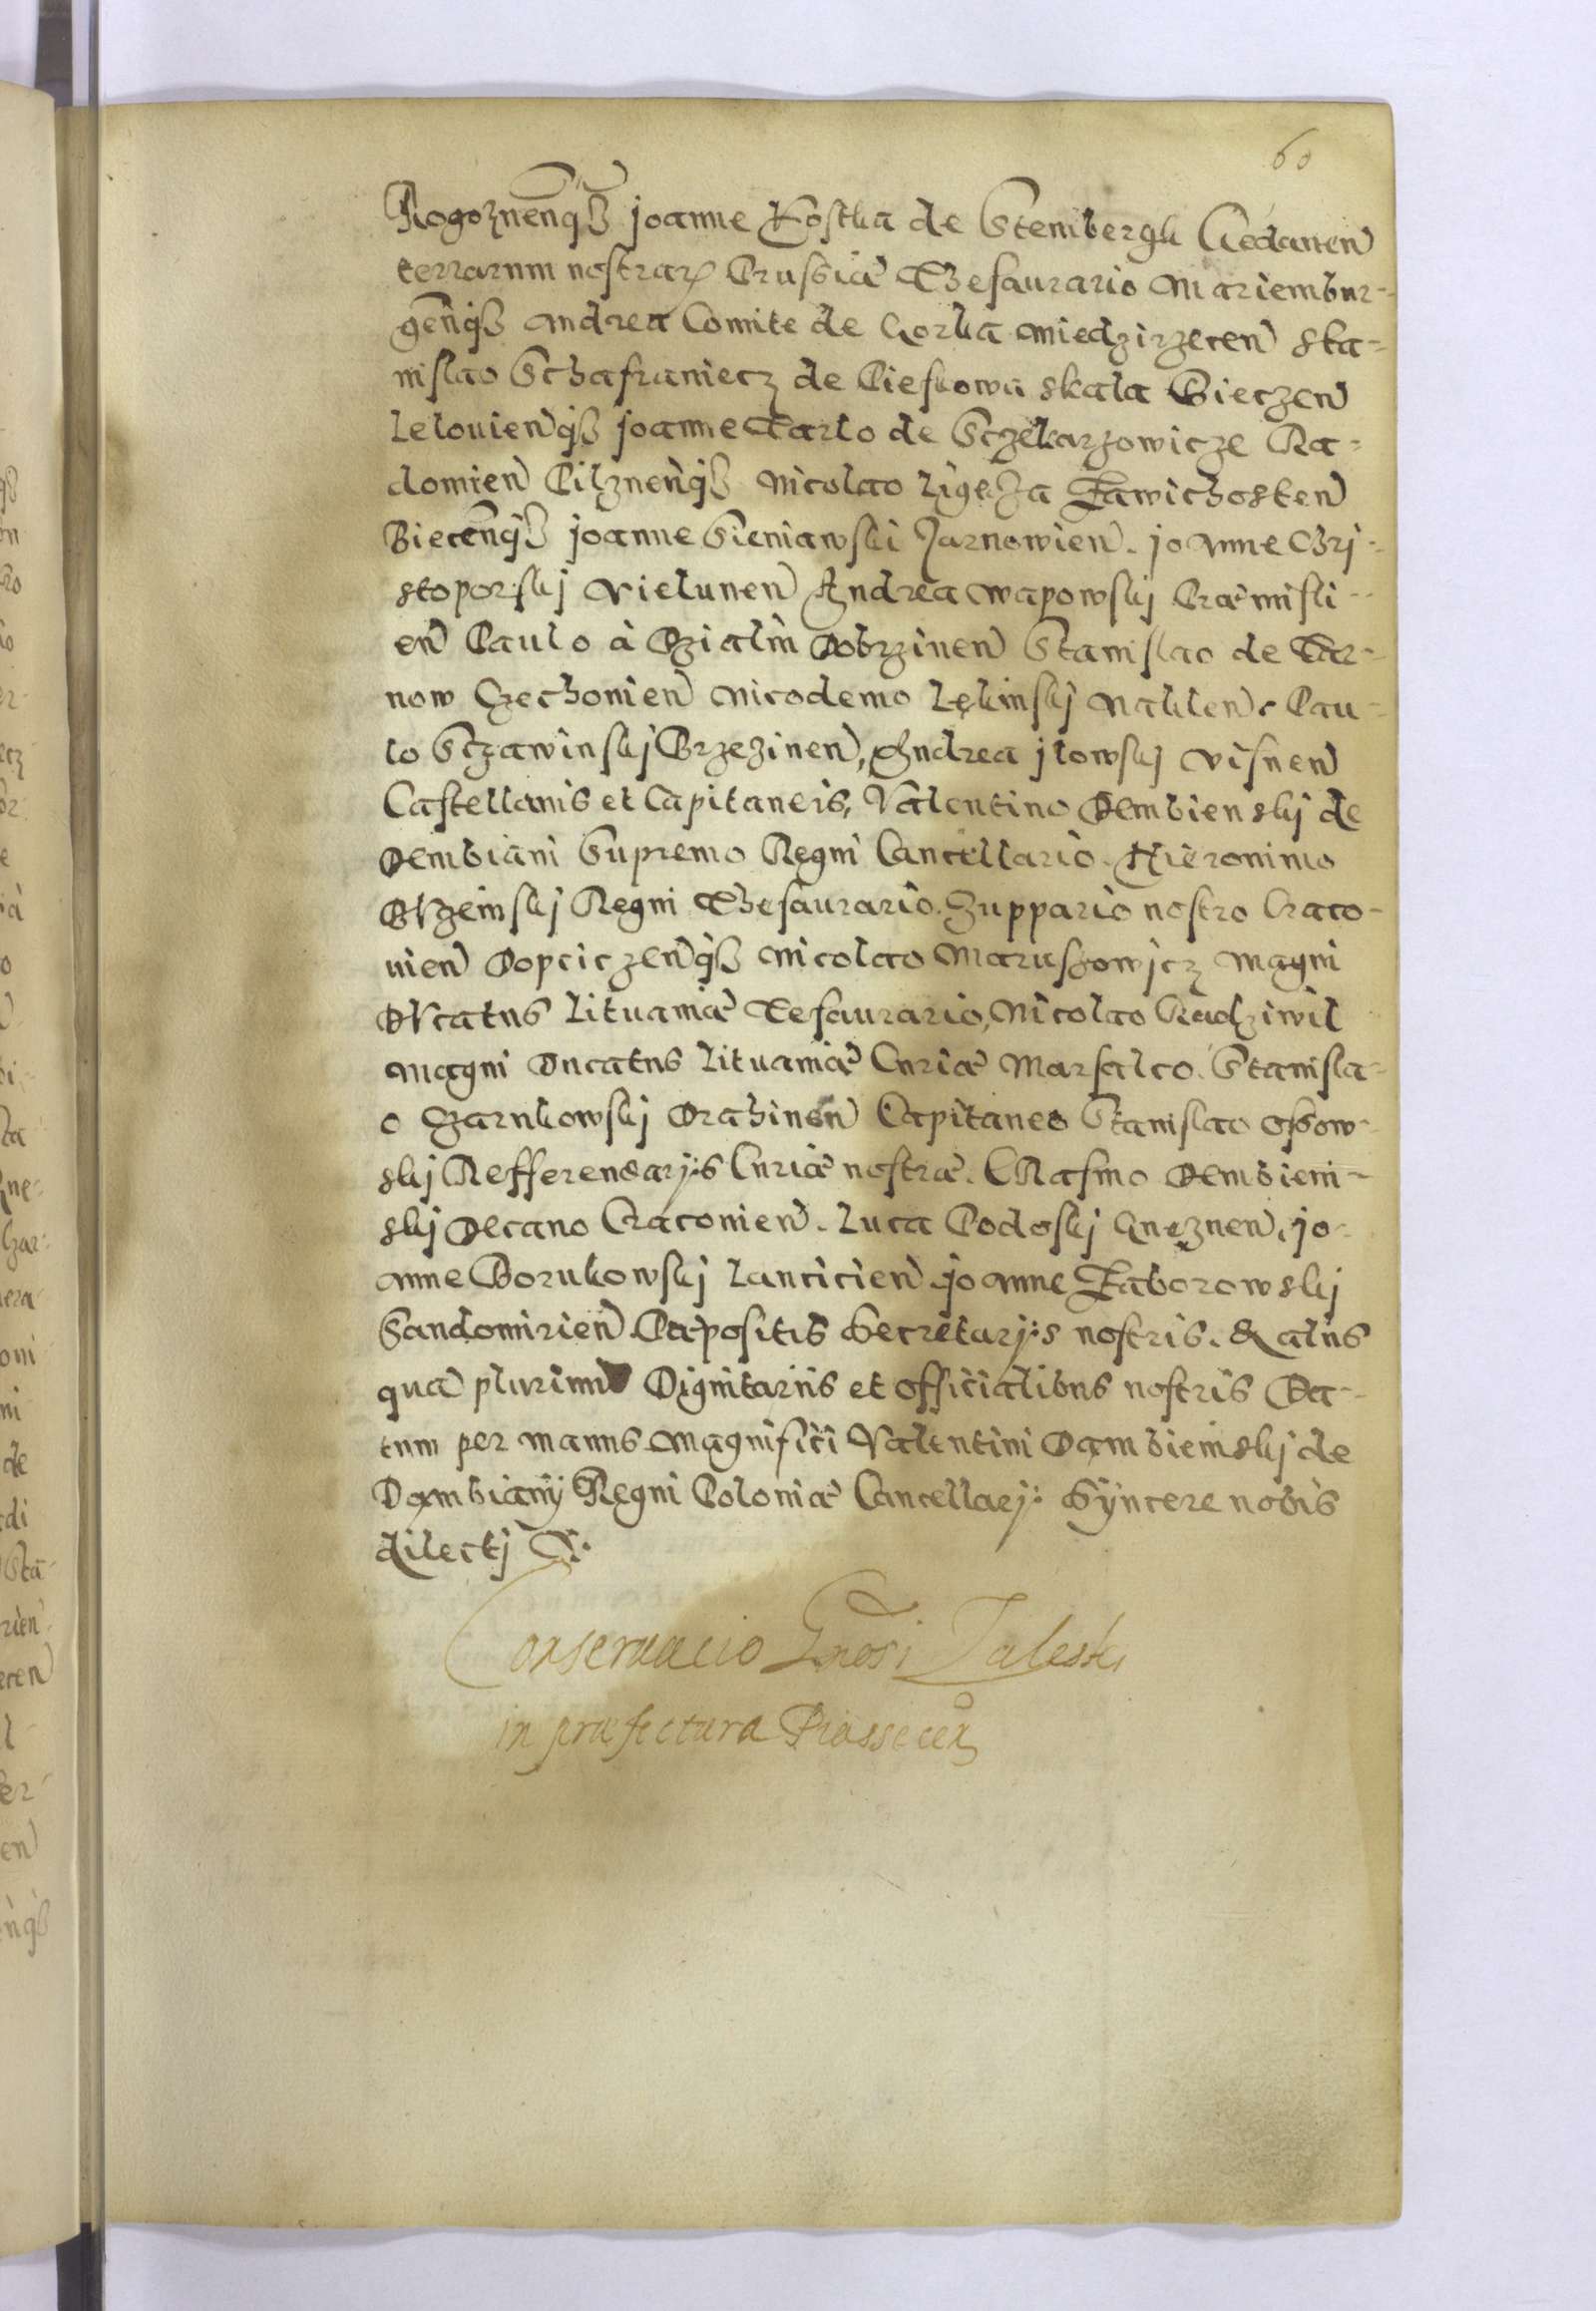 60
Rogoznenqß joanne Kostka de Stembergk Gedanen
terrarum nostrar Prussiæ Thesaurario Mariembur-
genqß Andrea Comite de Gorka Miedzirzecen Sta-
nislao Schafraniecz de Pieskowa skala Bieczen
Lelouienqß joanne Tarlo de Sczekarzowicze Ra-
domien Pilznenqß Nicolao Ligęza Zawichosten
Biecenqß joanne Sieniawski Zarnowien. joanne Chri-
stoporskj Vielunen Andrea Wapowskj Præmisli-
en Paulo à Dzialin Dobrzinen Stanislao de Tar-
now Czechouien Nicodemo Lękinskj Naklen. Pau-
lo Sczawinskj Brzezinen, Andrea jlowskj Visnen
Castellanis et Capitaneis, Valentino Dembienskj de
Dembiani Supremo Regni Cancellario. Hieronimo
Bvzeinskj Regni Thesaurario. Zuppario nostro Craco-
uien Dopciczenqß Nicolao Maruszowjcz Magni
Dvcatus Lituaniæ Tesaurario, Nicolao Radziwil
Magni Ducatus Lituaniæ Curiæ Marsalco. Stanisla-
o Czarnkowskj Drahinen Capitaneo Stanislao Ossow-
skj Refferendarj:s Curiæ nostræ. ERasmo Dembiein-
skj Decano Cracouien. Luca Podoskj Gneznen, jo-
anne Borukowskj Lancicien. joanne Zaborowskj
Sandomirien Præpositis Secretarj:s nostris. & alijs
qua plurimis Dignitariis et officialibus nostris Da-
tum per manus Magnifici Valentini Dambieinskj de
Dambianij Regni Poloniæ Cancellarj: Syncere nobis
dilectj
Conservacio Gnosi Zaleski
in præfectura Piassecen